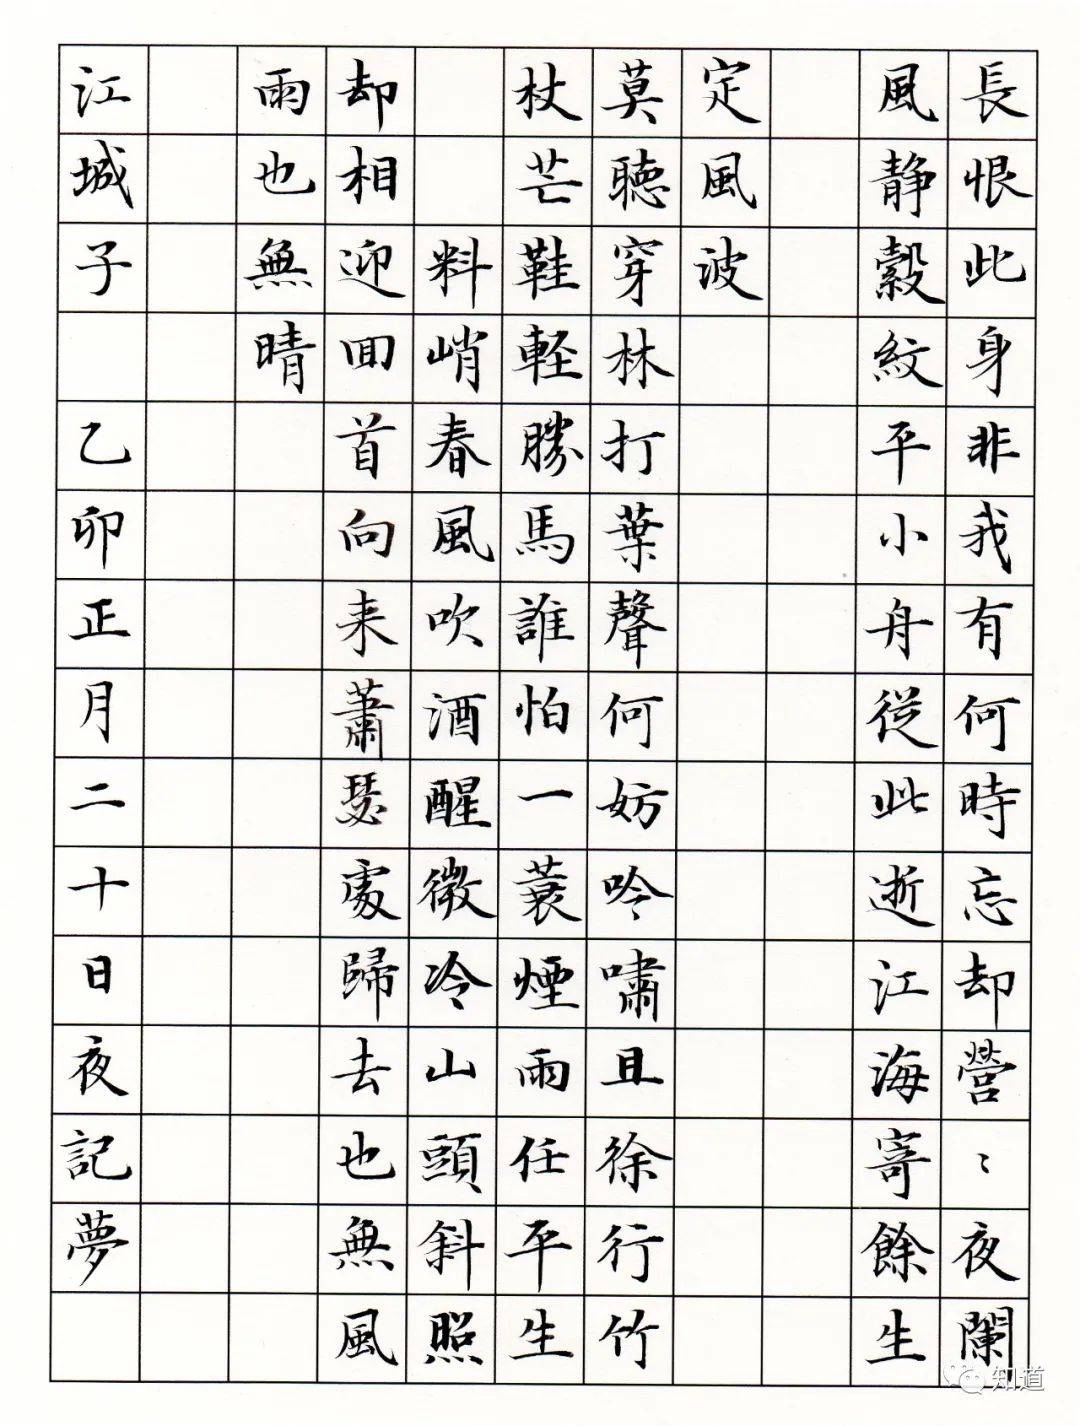 長恨此身非我有何時忘却營〻夜闌
風靜縠紋平小舟從此逝江海寄餘生
定風波
莫聴穿林打葉聲何妨吟嘯且徐行竹
杖芒鞋軽勝馬誰怕一蓑煙雨任平生
料峭春風吹酒醒微冷山頭斜照
却相迎回首向来蕭瑟處歸去也無風
雨也無晴
江城子 乙卯正月二十日夜記夢
知道